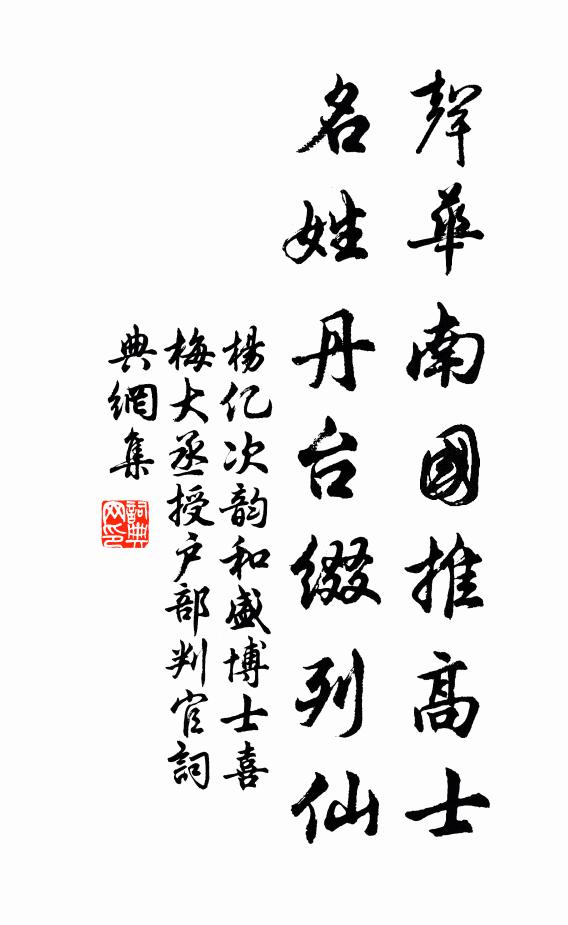 聲華南國推高士
名姓丹台綴列仙
楊億次韵和盛博士喜
梅大丞授户部判官詞
典網集
詞典网印